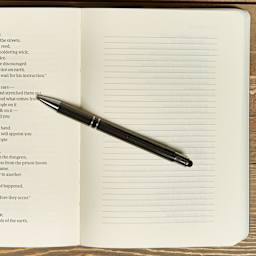 the streets.
reed,
smoldering wick,
ce.
e discouraged
ice on earth.
wait for his instruction."
ears—
nd stretched them out.
and what comes
eople on it
alk on it—
d you
hand.
will appoint you
people
m the dungeon,
es from the prison house.
name.
to another
of happened,
efore they occur."
ds of the earth,